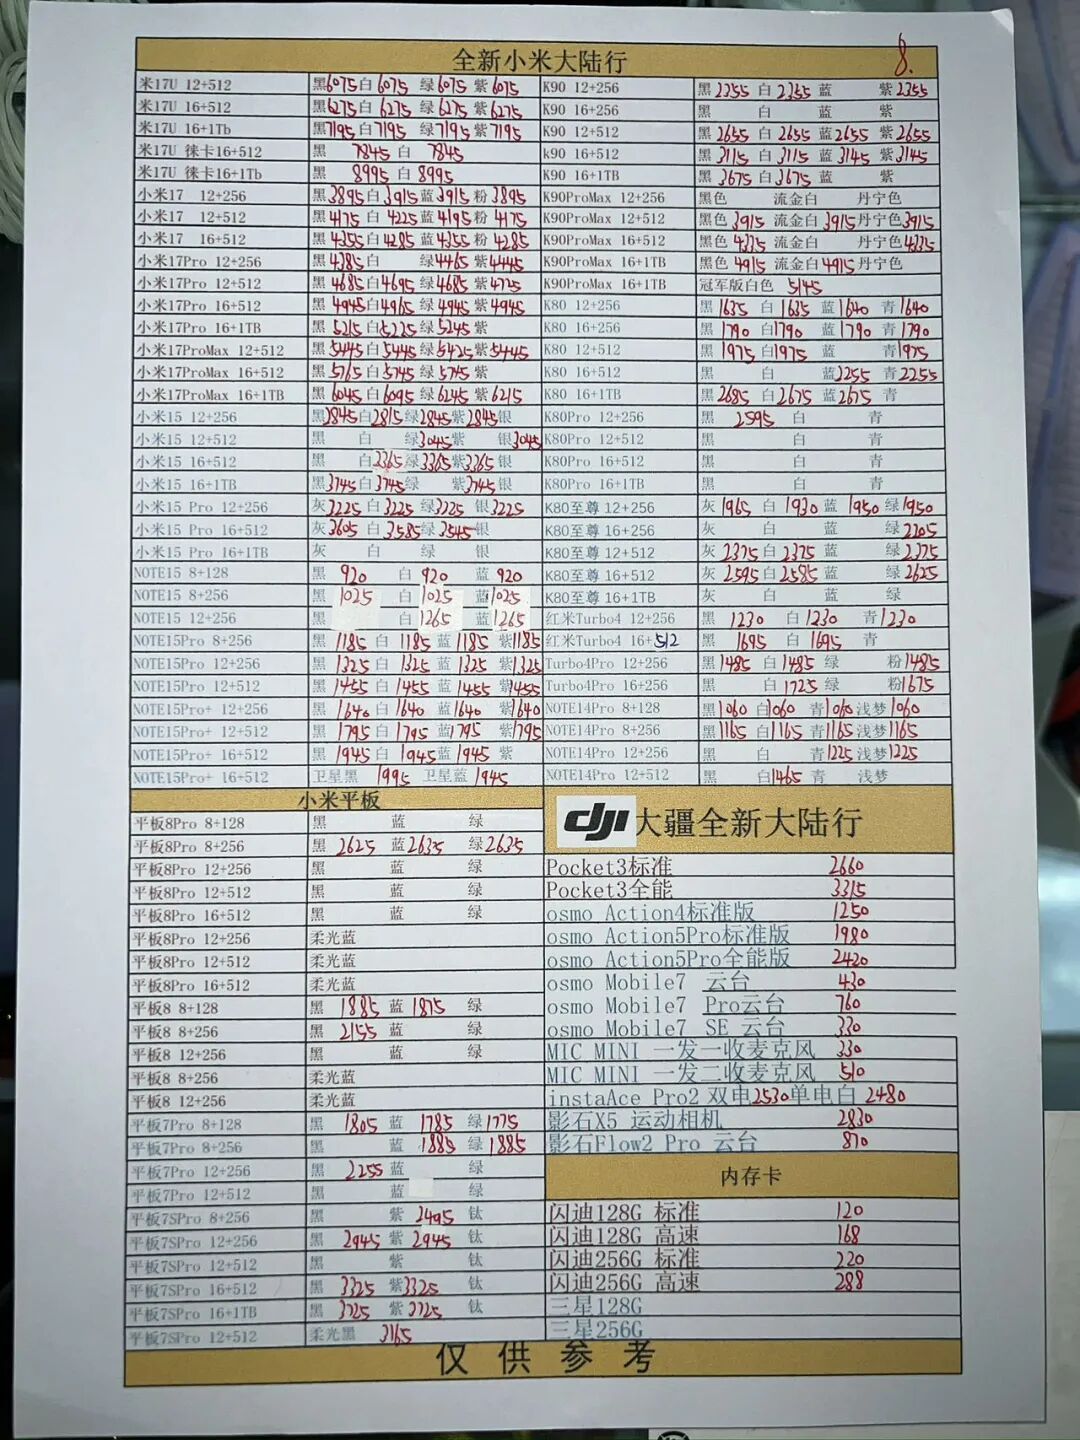 8.
全新小米大陆行
米17U 12+512 黑6075白6075 绿6075 紫6075
米17U 16+512 黑6275白6275 绿6275 紫6275
米17U 16+1Tb 黑7195白7195 绿7195紫7195
米17U 徕卡16+512 黑 7845 白 7845
米17U 徕卡16+1Tb 黑 8995 白 8995
小米17 12+256 黑3895白3915蓝3915粉3895
小米17 12+512 黑4175 白4225蓝4195粉4175
小米17 16+512 黑4355白4285蓝4355粉4285
小米17Pro 12+256 黑4385白 绿4465紫4445
小米17Pro 12+512 黑4685白4695绿4685紫4725
小米17Pro 16+512 黑4945白4965绿4945紫4945
小米17Pro 16+1TB 黑5215白5225绿5245紫
小米17ProMax 12+512 黑5445白5445绿5425紫5445
小米17ProMax 16+512 黑5765白5745绿5745紫
小米17ProMax 16+1TB 黑6045白6095绿6245紫6215
小米15 12+256 黑2845白2815绿2845紫2845银
小米15 12+512 黑 白 绿3045紫 银3045
小米15 16+512 黑 白3365绿3365紫3365银
小米15 16+1TB 黑3745白3745绿 紫3745银
小米15 Pro 12+256 灰3225白3225绿3225 银3225
小米15 Pro 16+512 灰3605白3585绿3545银
小米15 Pro 16+1TB 灰 白 绿 银
NOTE15 8+128 黑 920 白 920 蓝 920
NOTE15 8+256 黑 1025 白1025 蓝1025
NOTE15 12+256 黑 白1265 蓝1265
NOTE15Pro 8+256 黑1185白1185蓝1185紫1185
NOTE15Pro 12+256 黑1325白1325蓝1325紫1325
NOTE15Pro 12+512 黑1455白1455蓝1455紫1455
NOTE15Pro+ 12+256 黑1640白1640蓝1640紫1640
NOTE15Pro+ 12+512 黑1795白1795蓝1795紫1795
NOTE15Pro+ 16+512 黑1945白1945蓝1945紫
NOTE15Pro+ 16+512 卫星黑 1995 卫星蓝1945
K90 12+256 黑2355 白2355蓝 紫2355
K90 16+256 黑 白 蓝 紫
K90 12+512 黑2655 白2655蓝2655紫2655
k90 16+512 黑3115 白3115 蓝3145紫3145
K90 16+1TB 黑3675白3675蓝 紫
K90ProMax 12+256 黑色 流金白 丹宁色
K90ProMax 12+512 黑色3915流金白3915丹宁色3915
K90ProMax 16+512 黑色4335流金白 丹宁色4335
K90ProMax 16+1TB 黑色4915流金白4915丹宁色
K90ProMax 16+1TB 冠军版白色 5145
K80 12+256 黑1635 白1635 蓝1640 青1640
K80 16+256 黑1790白1790 蓝1790 青1790
K80 12+512 黑1975白1975 蓝 青1975
K80 16+512 黑 白 蓝2255 青2255
K80 16+1TB 黑2685白2675蓝2675 青
K80Pro 12+256 黑 2595 白 青
K80Pro 12+512 黑 白 青
K80Pro 16+512 黑 白 青
K80Pro 16+1TB 黑 白 青
K80至尊 12+256 灰1965白1930蓝1950绿1950
K80至尊 16+256 灰 白 蓝 绿2205
K80至尊 12+512 灰2375白2375蓝 绿2375
K80至尊 16+512 灰2595白2585蓝 绿2625
K80至尊 16+1TB 灰 白 蓝 绿
红米Turbo4 12+256 黑 1230 白1230 青1230
红米Turbo4 16+512 黑 1695 白1695 青
Turbo4Pro 12+256 黑1485 白1485绿 粉1485
Turbo4Pro 16+256 黑 白1725绿 粉1675
NOTE14Pro 8+128 黑1060 白1060 青1060浅梦1060
NOTE14Pro 8+256 黑1165 白1165 青1165浅梦1165
NOTE14Pro 12+256 黑 白 青1225浅梦1225
NOTE14Pro 12+512 黑 白1465青 浅梦
小米平板
平板8Pro 8+128 黑 蓝 绿
平板8Pro 8+256 黑 2625 蓝2635 绿2635
平板8Pro 12+256 黑 蓝 绿
平板8Pro 12+512 黑 蓝 绿
平板8Pro 16+512 黑 蓝 绿
平板8Pro 12+256 柔光蓝
平板8Pro 12+512 柔光蓝
平板8Pro 16+512 柔光蓝
平板8 8+128 黑 1885 蓝 1875 绿
平板8 8+256 黑 2155 蓝 绿
平板8 12+256 黑 蓝 绿
平板8 8+256 柔光蓝
平板8 12+256 柔光蓝
平板7Pro 8+128 黑 1805 蓝 1785 绿1775
平板7Pro 8+256 黑 蓝 1885 绿1885
平板7Pro 12+256 黑 2255蓝 绿
平板7Pro 12+512 黑 蓝 绿
平板7SPro 8+256 黑 紫 2495 钛
平板7SPro 12+256 黑 2945 紫 2945 钛
平板7SPro 12+512 黑 紫 钛
平板7SPro 16+512 黑 3325 紫3325 钛
平板7SPro 16+1TB 黑 3725 紫3725 钛
平板7SPro 12+512 柔光黑 3165
dji大疆全新大陆行
Pocket3标准 2660
Pocket3全能 3315
osmo Action4标准版 1250
osmo Action5Pro标准版 1980
osmo Action5Pro全能版 2420
osmo Mobile7 云台 430
osmo Mobile7 Pro云台 760
osmo Mobile7 SE 云台 330
MIC MINI 一发一收麦克风 330
MIC MINI 一发二收麦克风 510
instaAce Pro2 双电2530单电白 2480
影石X5 运动相机 2830
影石Flow2 Pro 云台 870
内存卡
闪迪128G 标准 120
闪迪128G 高速 168
闪迪256G 标准 220
闪迪256G 高速 288
三星128G
三星256G
仅供参考